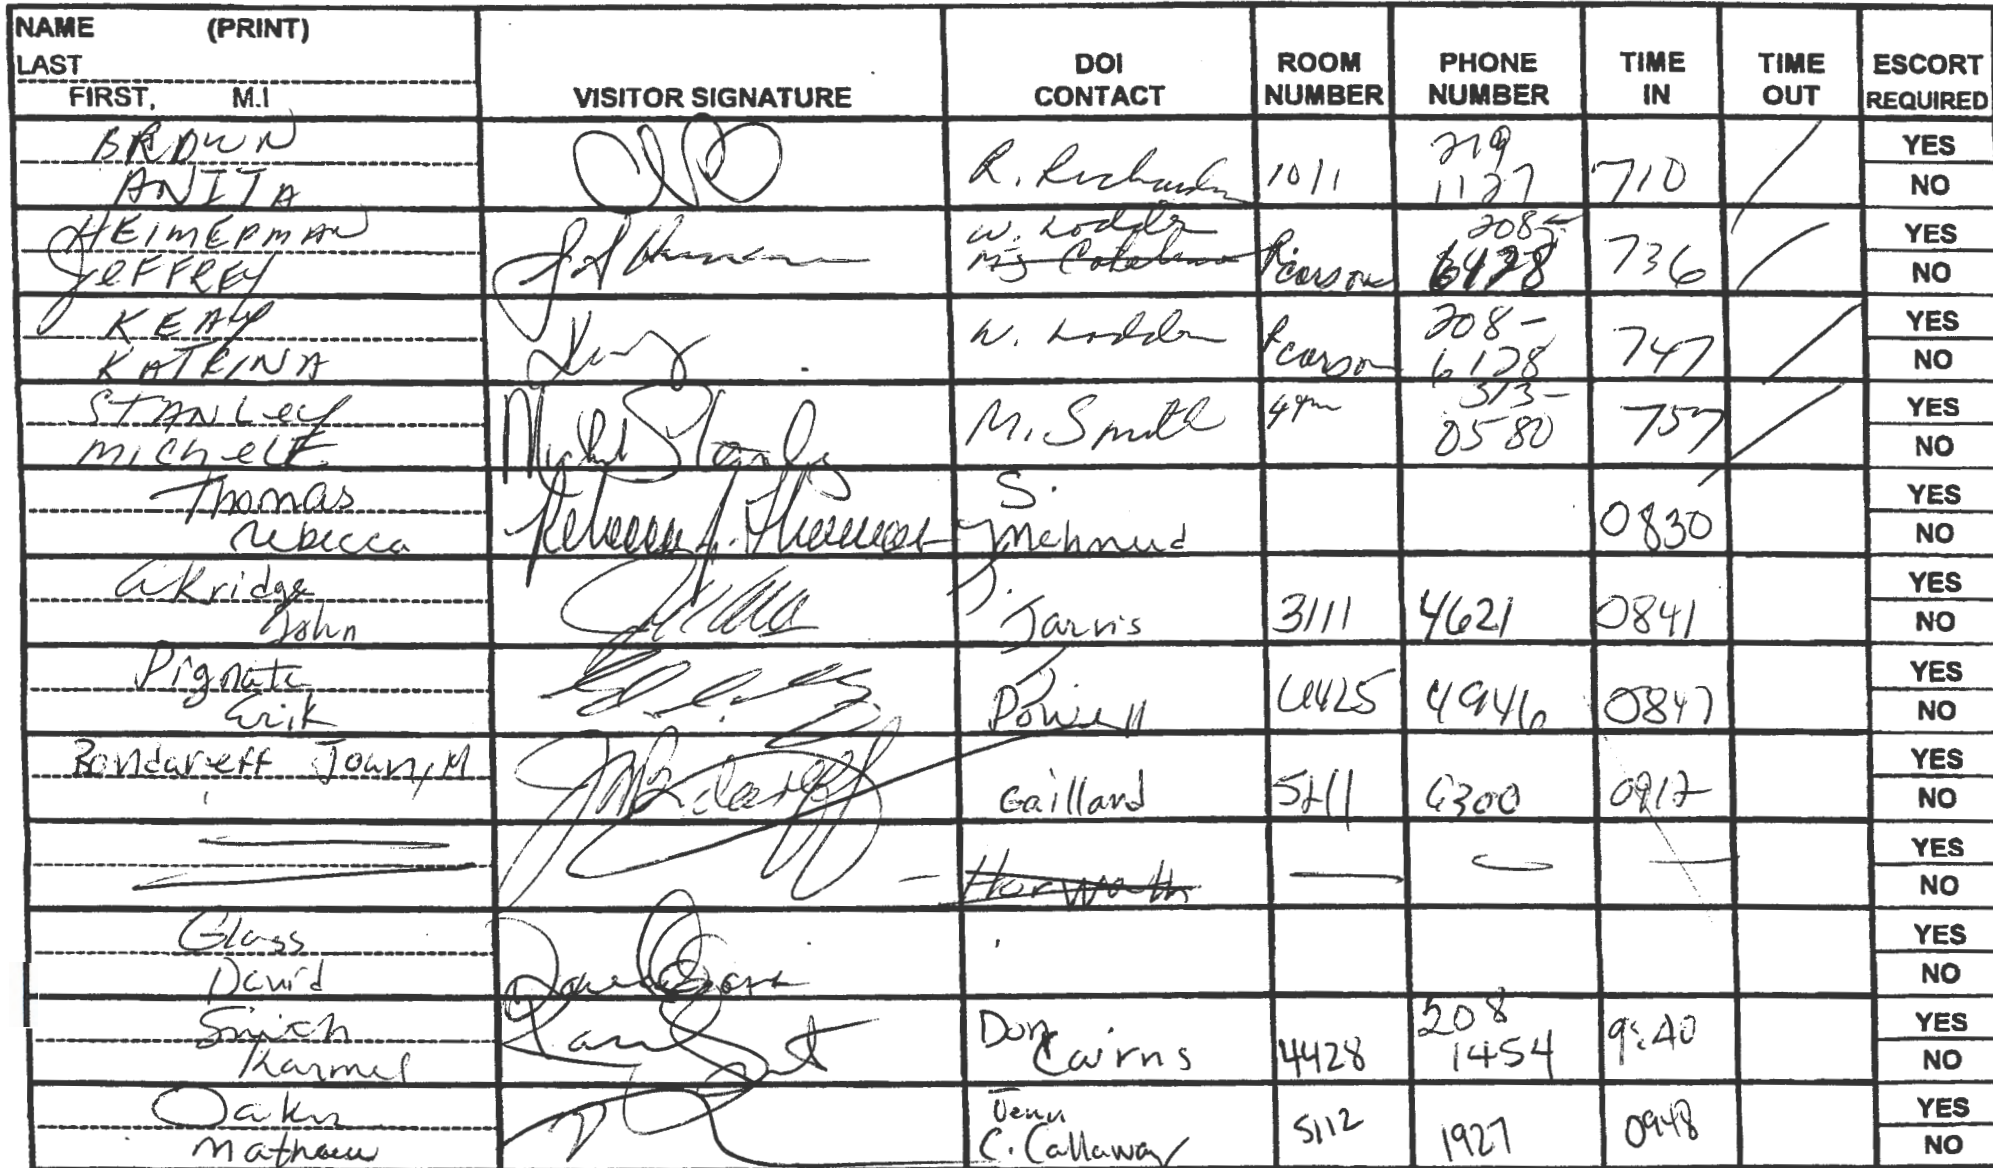 NAME (PRINT)
LAST
FIRST, M.I
VISITOR SIGNATURE
DOI CONTACT
ROOM NUMBER
PHONE NUMBER
TIME IN
TIME OUT
ESCORT REQUIRED
BROWN
ANITA
R. 1011 219 1127 710
YES
NO
HEIMERMAN
JEFFREY
W. 208- 736
YES
NO
KEAY
KATRINA
W. 208- 6128 747
YES
NO
STANLEY
MICHELE
Michel Stanley
M. Smith 513- 0580 757
YES
NO
Thomas
rebecca
Rebecca J. Thomas
S. Mehmud 0830
YES
NO
Akridge
John
J. Jarvis 3111 4621 0841
YES
NO
Erik
J Powell 4946 0847
YES
NO
Bondareff Joan, M
JMBondareff
Gaillard 5211 6300 0912
YES
NO
Horwath
YES
NO
Glass
David
YES
NO
Smith
Karmel
Don Cairns 4428 208 1454 9:40
YES
NO
Mathew
C. Callaway 5112 1927 0948
YES
NO